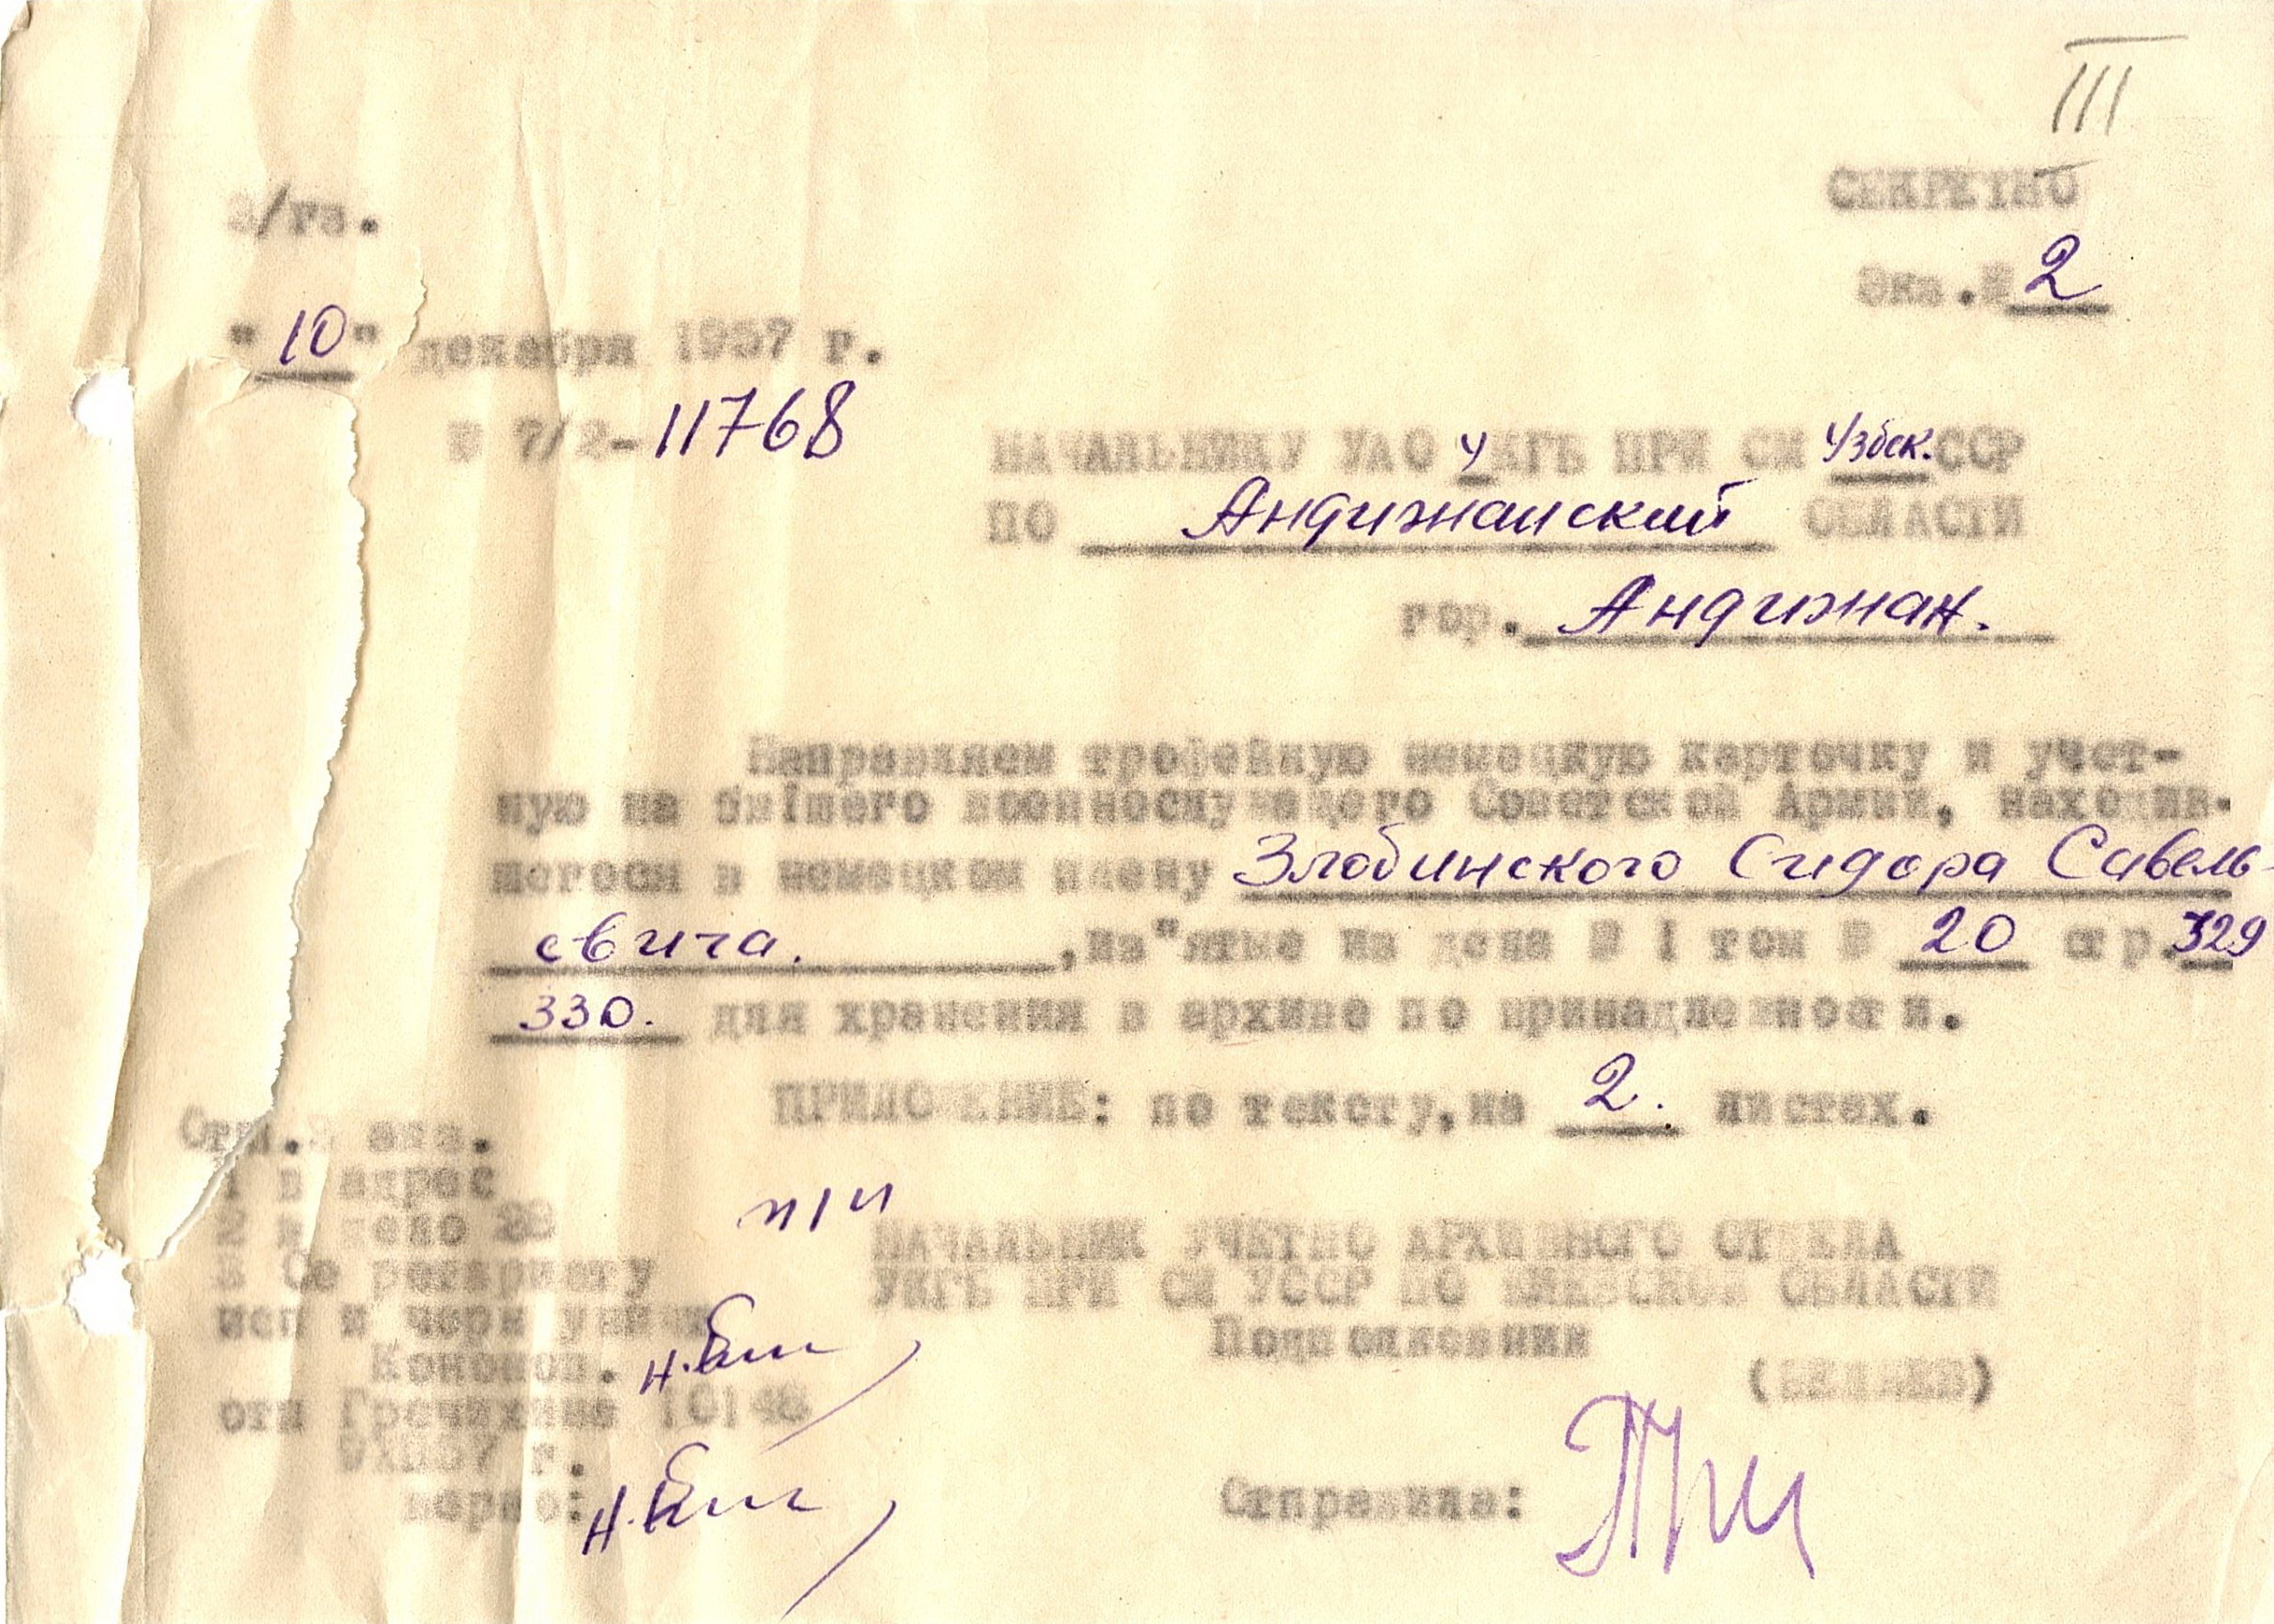 III
СЕКРЕТНО
/гв.
Экз.№ 2
"10" декабря 1957 г.
№ 7/2-11768
НАЧАЛЬНИКУ УАО УКГБ ПРИ СМ Узбек.ССР
ПО Андижанский ОБЛАСТИ
гор. Андижан.
Направляем трофейную немецкую карточку и учет-
ную на бывшего военнослужащего Советской Армии, находив-
шегося в немецком плену Злобинского Сидора Савель-
евича. , изъятые из дела № 1 том № 20 стр. 329
330. для хранения в архиве по принадлежности.
ПРИЛОЖЕНИЕ: по тексту, на 2. листах.
Отп. экз.
1 в адрес
2 в дело
исп и черн
Кононов.
отп Гречихина
9.XII.57 г.
верно:
п/п
НАЧАЛЬНИК УЧЕТНО АРХИВНОГО ОТДЕЛА
УКГБ ПРИ СМ УССР ПО КИЕВСКОЙ ОБЛАСТИ
Подполковник
Отправила: